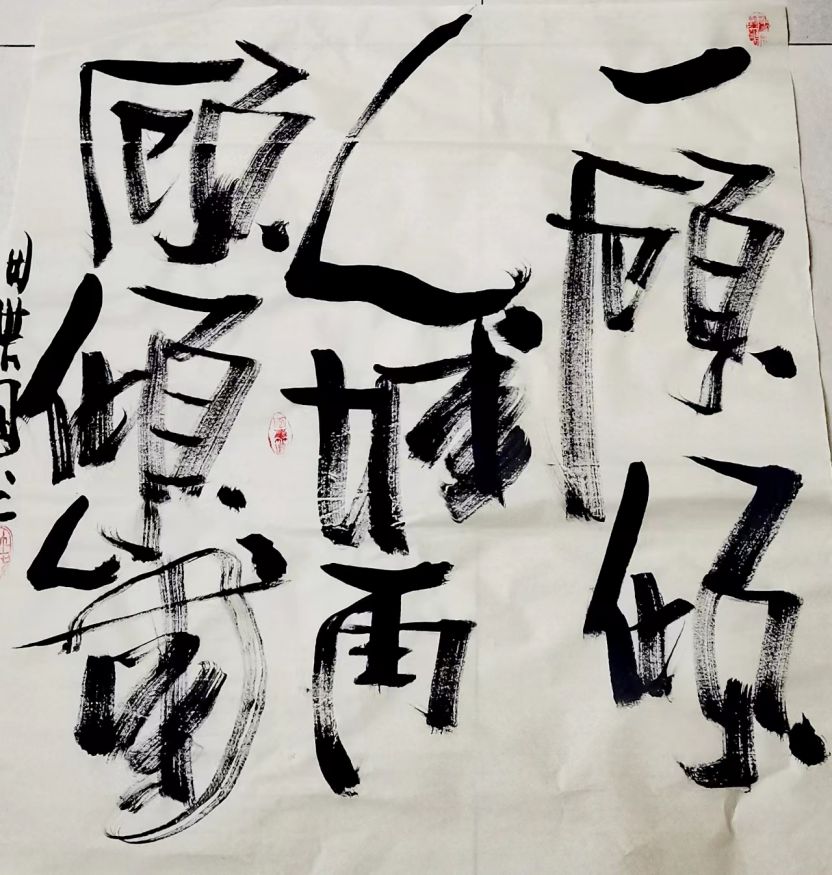 一顾倾
人城再
顾倾人國